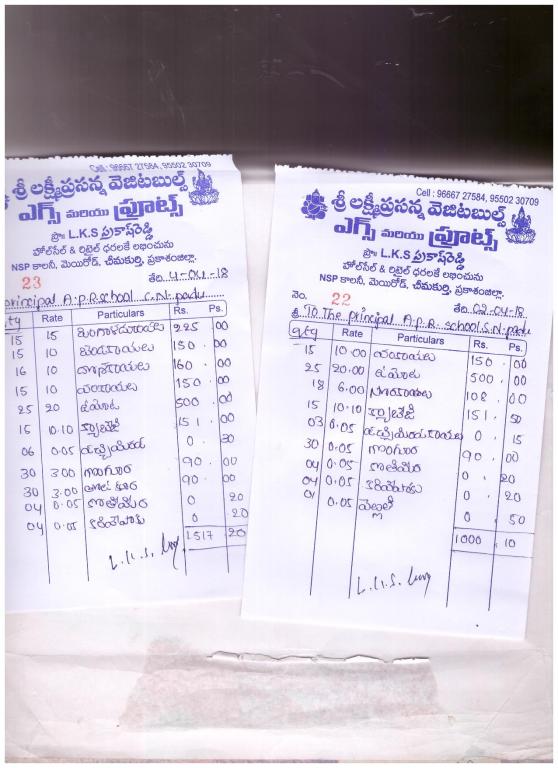 Cell : 96667 27584, 95502 30709
శ్రీ లక్ష్మీప్రసన్న వెజిటబుల్స్
ఎగ్స్ మరియు ఫ్రూట్స్
ప్రొ॥ L.K.S ప్రకాష్‌రెడ్డి
హోల్‌సేల్ & రిటైల్ ధరలకే లభించును
NSP కాలనీ, మెయిన్‌రోడ్, చీమకుర్తి, ప్రకాశంజిల్లా.
23 తేది 4-04-18
principal A.P.R school S.N. padu
Qty Rate Particulars Rs. Ps.
15 15 బంగాళదుంపలు 225 00
15 10 బెండకాయలు 150 00
16 10 దోసకాయలు 160 00
15 10 వంకాయలు 150 00
25 20 టమోట 500 00
15 10.10 క్యాబేజి 151 00
06 0.05 పచ్చిమిరప 0 30
30 3.00 గోంగూర 90 00
30 3.00 90 00
04 0.05 కొతిమీర 0 20
04 0.05 కరివేపాకు 0 20
1517 20
L.K.S.
Cell : 96667 27584, 95502 30709
శ్రీ లక్ష్మీప్రసన్న వెజిటబుల్స్
ఎగ్స్ మరియు ఫ్రూట్స్
ప్రొ॥ L.K.S ప్రకాష్‌రెడ్డి
హోల్‌సేల్ & రిటైల్ ధరలకే లభించును
NSP కాలనీ, మెయిన్‌రోడ్, చీమకుర్తి, ప్రకాశంజిల్లా.
నెం. 22 తేది 02-04-18
శ్రీ To The principal A.P.R. school. S.N. padu
Qty Rate Particulars Rs. Ps.
15 10.00 వంకాయలు 150 00
25 20.00 టమోట 500 00
18 6.00 108 00
15 10.10 క్యాబేజి 151 50
03 0.05 పచ్చిమిరపకాయలు 0 15
30 0.05 గోంగూర 90 00
04 0.05 కొతిమీర 0 20
04 0.05 కరివేపాకు 0 20
01 0.05 0 50
1000 10
L.K.S.